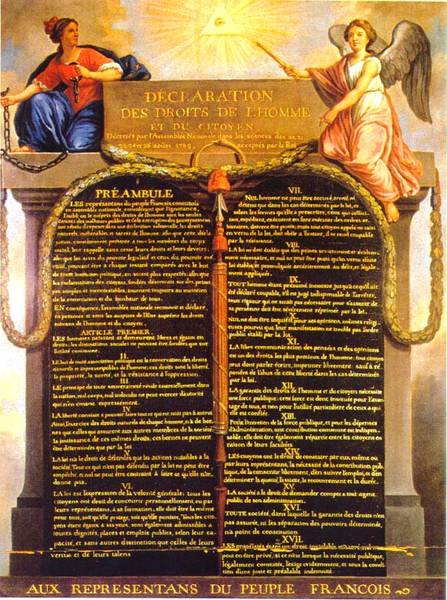 DÉCLARATION
DES DROITS DE L'HOMME
ET DU CITOYEN,
Décrétés par l'Assemblée Nationale dans les séances des 20, 21,
23, 24 et 26 août 1789, acceptés par le Roi
PRÉAMBULE
LES représentans du peuple François, constitués
en assemblée nationale, considérant que l'ignorance,
l'oubli ou le mépris des droits de l'homme sont les seules
causes des malheurs publics et de la corruption des gouvernemens
ont résolu d'exposer dans une déclaration solemnelle, les droits
naturels, inaliénables et sacrés de l'homme; afin que cette décla-
ration, constamment présente à tous les membres du corps
social, leur rappelle sans cesse leurs droits et leurs devoirs;
afin que les actes du pouvoir législatif et ceux du pouvoir exé-
cutif, pouvant être à chaque instant comparés avec le but
de toute institution politique, en soient plus respectés; afin que
les réclamations des citoyens, fondées désormais sur des princi-
pes simples et incontestables, tournent toujours au maintien
de la constitution et du bonheur de tous.
EN conséquence, l'assemblée nationale reconnoit et déclare,
en présence et sous les auspices de l'Etre suprême les droits
suivans de l'homme et du citoyen.
ARTICLE PREMIER.
LES hommes naissent et demeurent libres et égaux en
droits; les distinctions sociales ne peuvent être fondées que sur
l'utilité commune.
II.
LE but de toute association politique est la conservation des droits
naturels et imprescriptibles de l'homme; ces droits sont la liberté,
la propriété, la sureté, et la résistance à l'oppression.
III.
LE principe de toute souveraineté réside essentiellement dans
la nation, nul corps, nul individu ne peut exercer d'autorité
qui n'en émane expressément.
IV.
LA liberté consiste à pouvoir faire tout ce qui ne nuit pas à autrui
Ainsi, l'exercice des droits naturels de chaque homme, n'a de bor-
nes que celles qui assurent aux autres membres de la société
la jouissance de ces mêmes droits; ces bornes ne peuvent
être déterminées que par la loi
V.
LA loi n'a le droit de défendre que les actions nuisibles à la
société. Tout ce qui n'est pas défendu par la loi ne peut être
empêché, et nul ne peut être contraint à faire ce qu'elle n'or-
donne pas.
VI.
LA loi est l'expression de la volonté générale; tous les
citoyens ont droit de concourir personnellement, ou par
leurs représentans, à sa formation; elle doit être la même
pour tous, soit qu'elle protege, soit qu'elle punisse. Tous les cito-
yens étant égaux à ses yeux, sont également admissibles à
toutes dignités, places et emplois publics, selon leur ca-
pacité, et sans autres distinctions que celles de leurs
vertus et de leurs talens.
VII.
NUL homme ne peut être accusé, arrêté ni
détenu que dans les cas déterminés par la loi, et
selon les formes qu'elle a prescrites, ceux qui sollici-
tent, expédient, exécutent ou font exécuter des ordres ar-
bitraires, doivent être punis; mais tout citoyen appelé ou saisi
en vertu de la loi, doit obéir à l'instant, il se rend coupable
par la résistance.
VIII.
LA loi ne doit établir que des peines strictement et évidem-
ment nécessaires, et nul ne peut être puni qu'en vertu d'une
loi établie et promulguée antérieurement au délit, et légale-
ment appliquée.
IX.
TOUT homme étant présumé innocent jusqu'à ce qu'il ait
été déclaré coupable, s'il est jugé indispensable de l'arrêter,
toute rigueur qui ne seroit pas nécessaire pour s'assurer de
sa personne doit être sévèrement réprimée par la loi.
X.
NUL ne doit être inquiété pour ses opinions, mêmes religi-
euses pourvu que leur manifestation ne trouble pas l'ordre
public établi par la loi.
XI.
LA libre communication des pensées et des opinions
est un des droits les plus précieux de l'homme; tout citoyen
peut donc parler, écrire, imprimer librement, sauf à ré-
pondre de l'abus de cette liberté dans les cas déterminés
par la loi.
XII.
LA garantie des droits de l'homme et du citoyen nécessite
une force publique; cette force est donc instituée pour l'avan-
tage de tous, et non pour l'utilité particulière de ceux à qui
elle est confiée.
XIII.
POUR l'entretien de la force publique, et pour les dépenses
d'administration, une contribution commune est indispensa-
ble; elle doit être également répartie entre les citoyens en
raison de leurs facultés.
XIV.
LES citoyens ont le droit de constater par eux même ou
par leurs représentans, la nécessité de la contribution publi-
que, de la consentir librement, d'en suivre l'emploi, et d'en
déterminer la quotité, l'assiette, le recouvrement et la durée.
XV.
LA société a le droit de demander compte à tout agent
public de son administration.
XVI.
TOUTE société, dans laquelle la garantie des droits n'est
pas assurée, ni les séparation des pouvoirs déterminée,
n'a point de constitution.
XVII.
LES propriétés étant un droit inviolable et sacré, nul ne
peut en être privé, si ce n'est lorsque la nécessité publique,
légalement constatée, l'exige évidemment, et sous la condi-
tion d'une juste et préalable indemnité.
AUX REPRESENTANS DU PEUPLE FRANCOIS